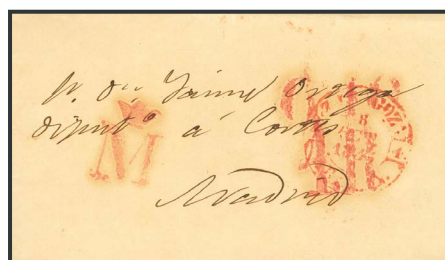 Sr. Dn. Jaime Ortega
diputdo á Cortes
Madrid
M
8